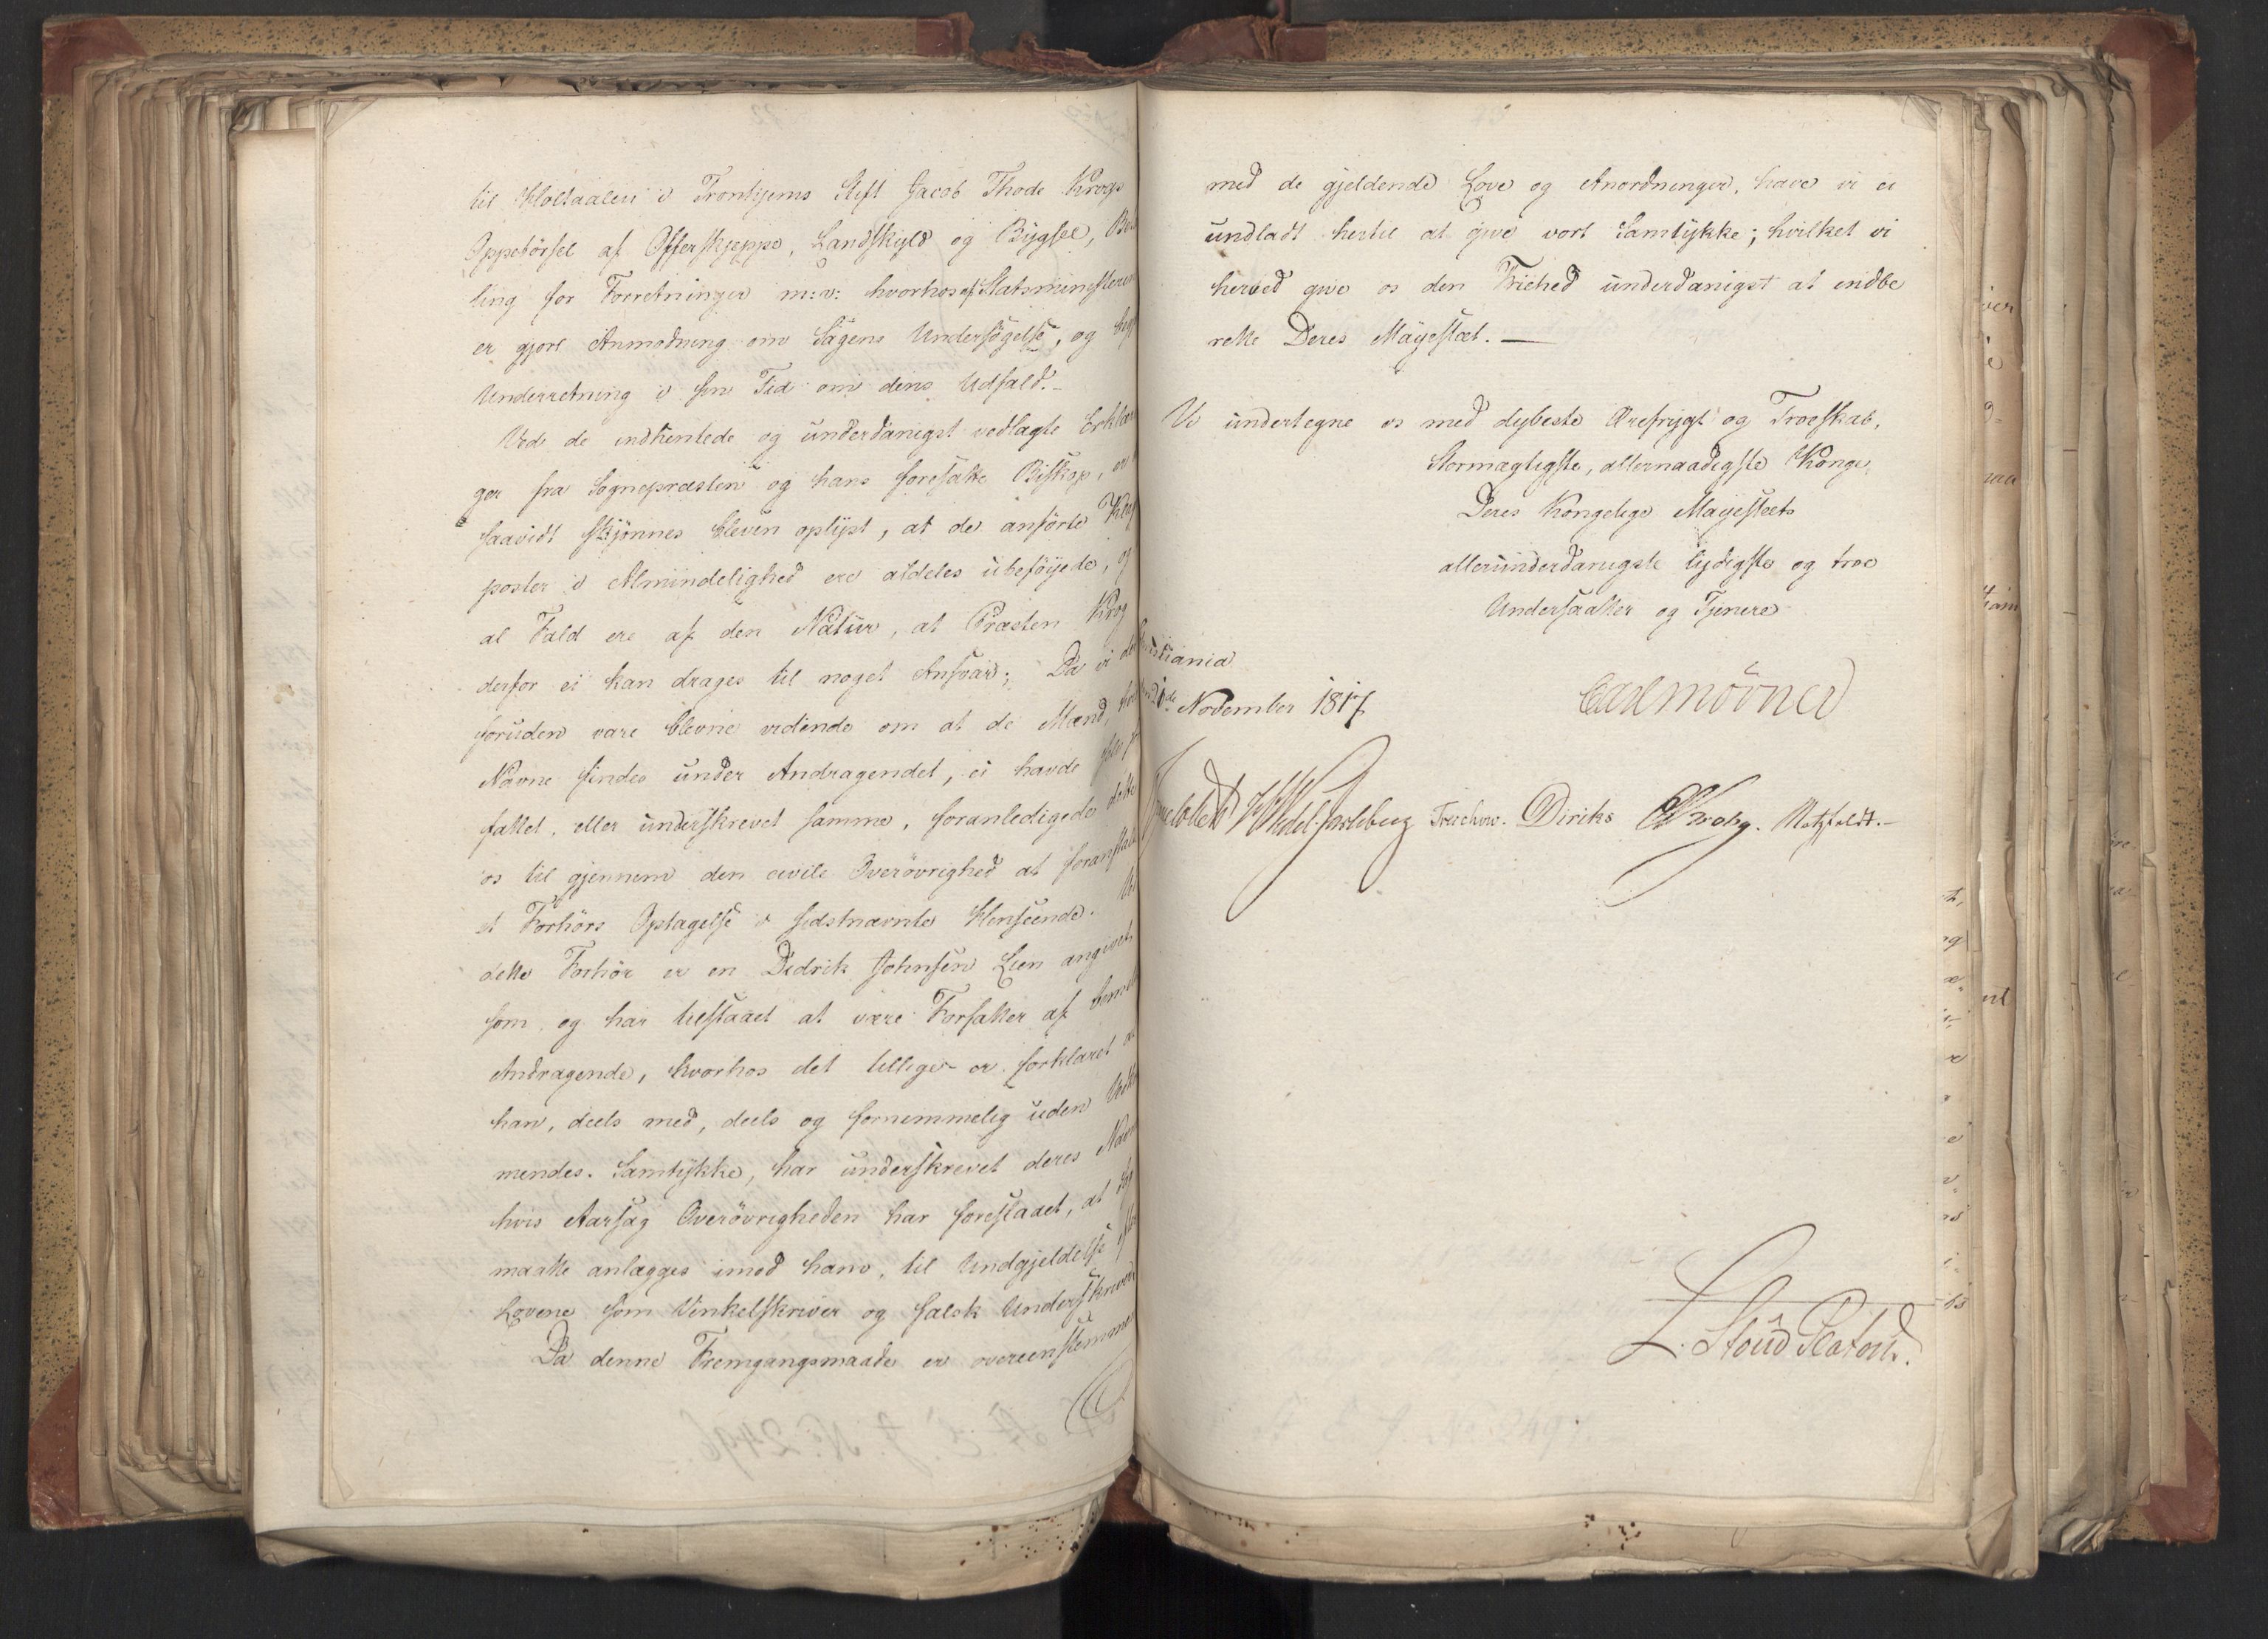 til Holtaalen i Tronhjems Stift Jacob Thode Krogs
Oppebörsel af Offerskjeppe, Landskyld og Bygsel,
ling for Forretninger m: v: hvorhos af Statsministeren
er gjort Anmodning om Sagens Undersøgelse, og
Underretning i sin Tid om dens Udfald.
Ved de indhentede og underdanigst vedlagte
ger fra Sognepræsten og hans foresatte Biskop, er
saavidt skjönnes bleven oplyst, at de anförte
poster i Almindelighed ere aldeles ubeföyede, og
al Fald ere af den Natur, at Præsten Krog
derfor ei kan drages til noget Ansvar; Da vi
foruden vare blevne vidende om at de Mænd,
Navne findes under Andragendet, ei havde
fattet, eller underskrevet samme, foranledigede dette
os til gjennem den civile Overövrighed at
et Forhörs Optagelse i sidstnævnte Henseende.
dette Forhör er en Didrik Johnsen Lien angivet,
som, og har tilstaaet at være Forfatter af
Andragende, hvorhos det tillige er forklaret
han, deels med, deels og fornemmelig uden
mendes Samtykke, har underskrevet deres
hvis Aarsag Overövrigheden har foreslaaet, at
maatte anlægges imod ham, til Undgjeldelse efter
Lovene som Vinkelskriver og falsk
Da denne Fremgangsmaade er
med de gjeldende Love og Anordninger, have vi ei
undladt hertil at give vort Samtykke; hvilket vi
herved give os den Friehed underdanigst at indbe
rette Deres Mayestæt. —
Vi undertegne os med dybeste Ærefrygt og Troeskab,
Stormægtigste, allernaadigste Konge
Deres Kongelige Mayestæts
allerunderdanigste lydigste og troe
Undersaatter og Tjenere
November 1817
Carl Mörner
Wedel-Jarlsberg Treschow. Diriks Krohg. Motzfeldt.
L. Stoud Platou.